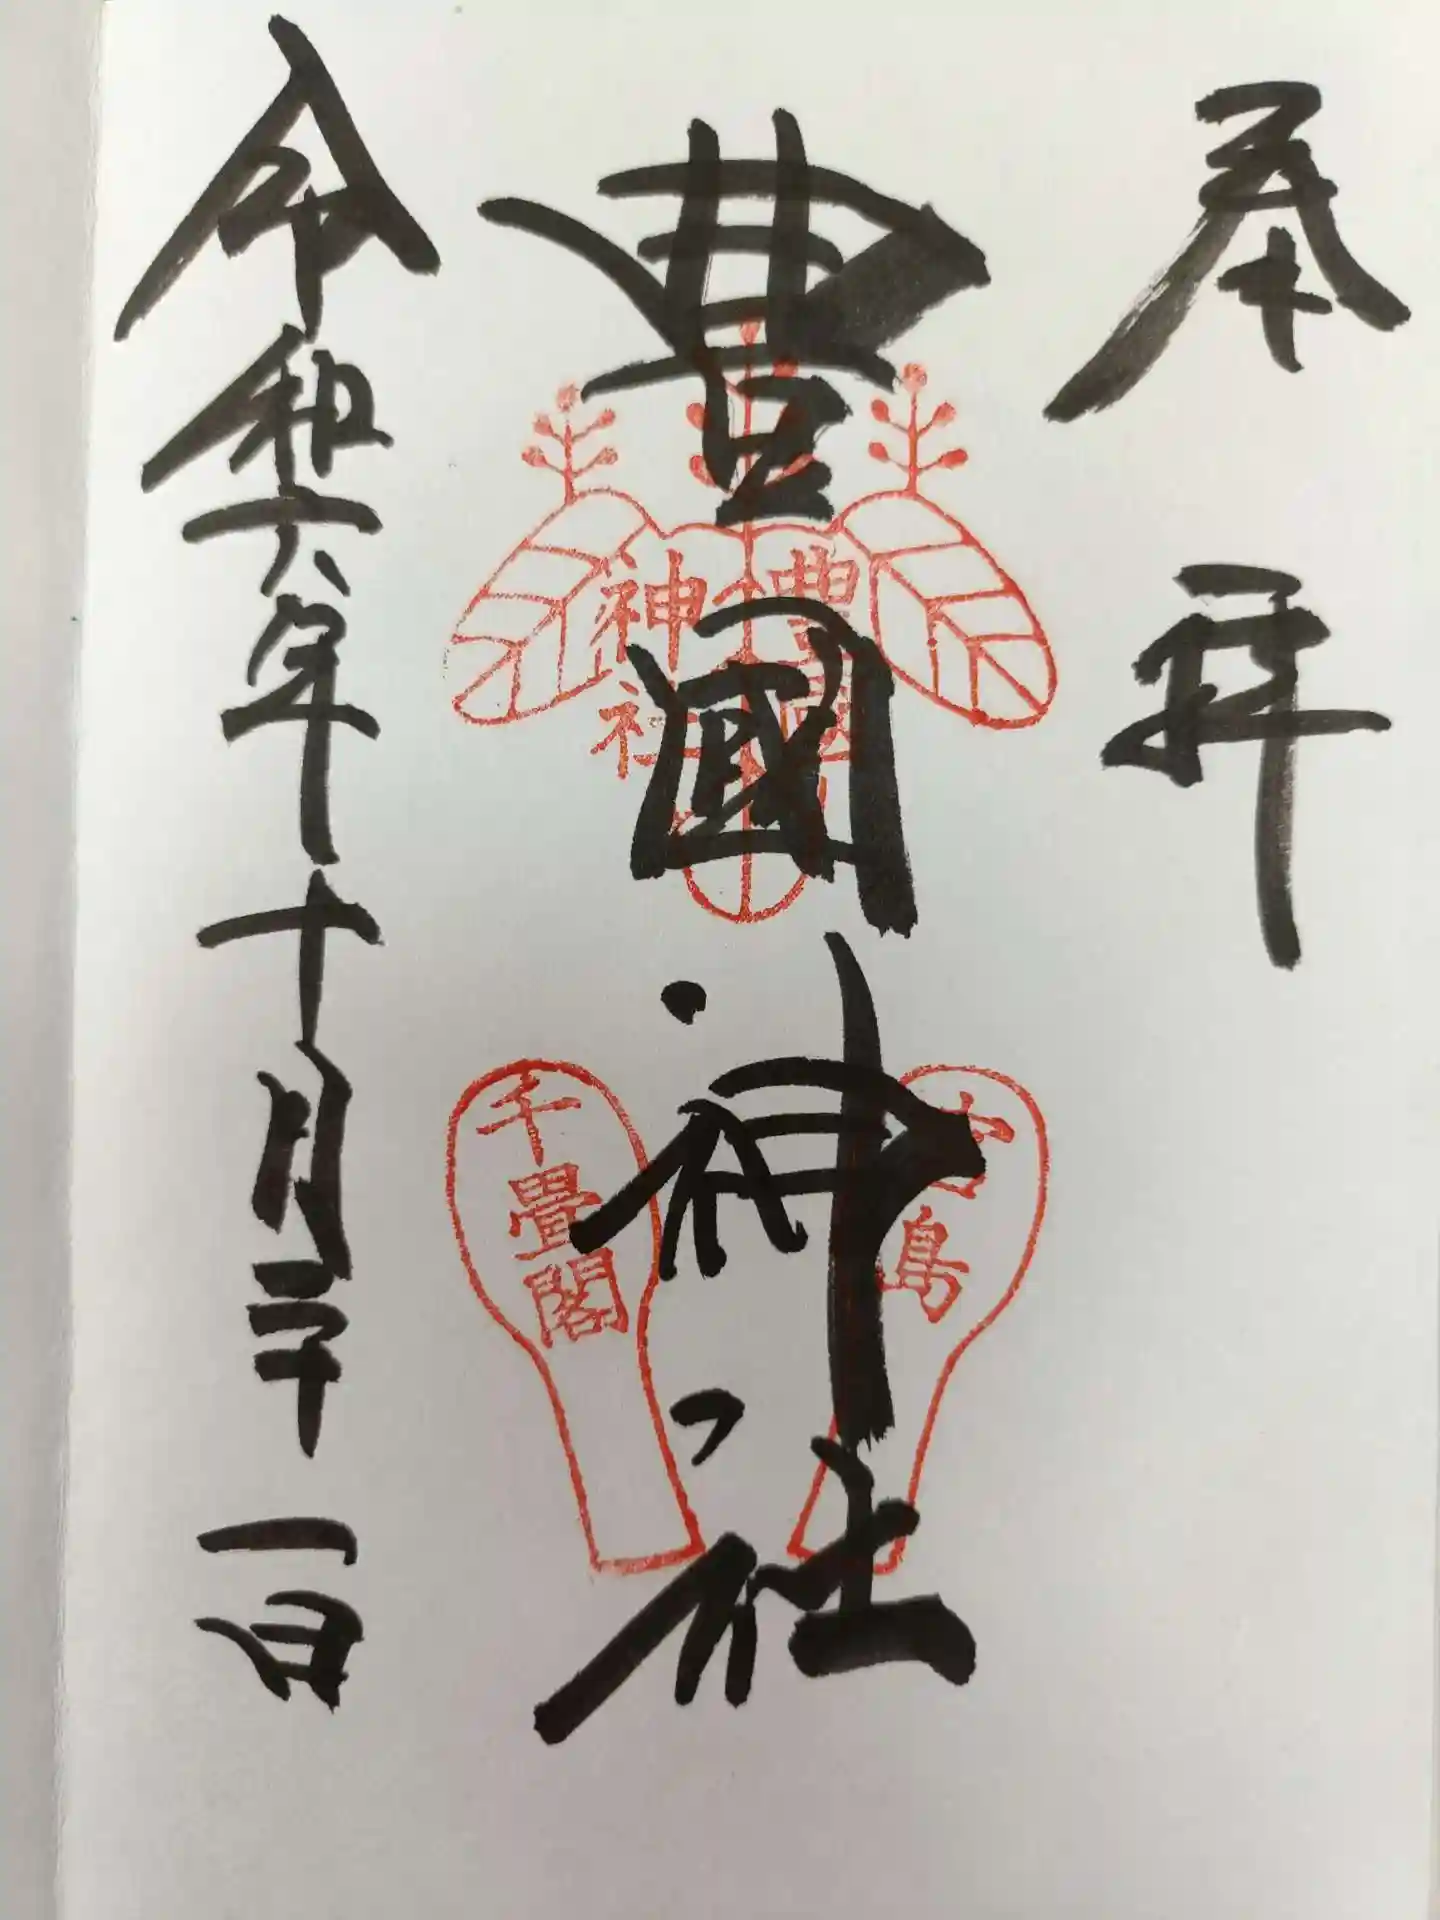 奉拝
豊國神社
豊國
神社
宮島
千畳閣
令和六年十月二十一日